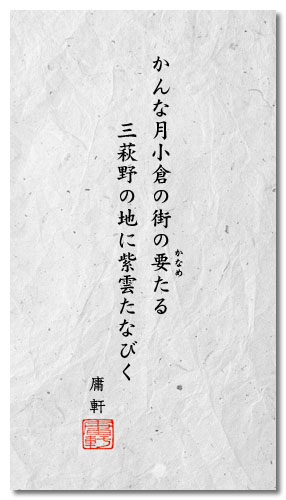 かんな月小倉の街の要たる
かなめ
三萩野の地に紫雲たなびく
庸軒